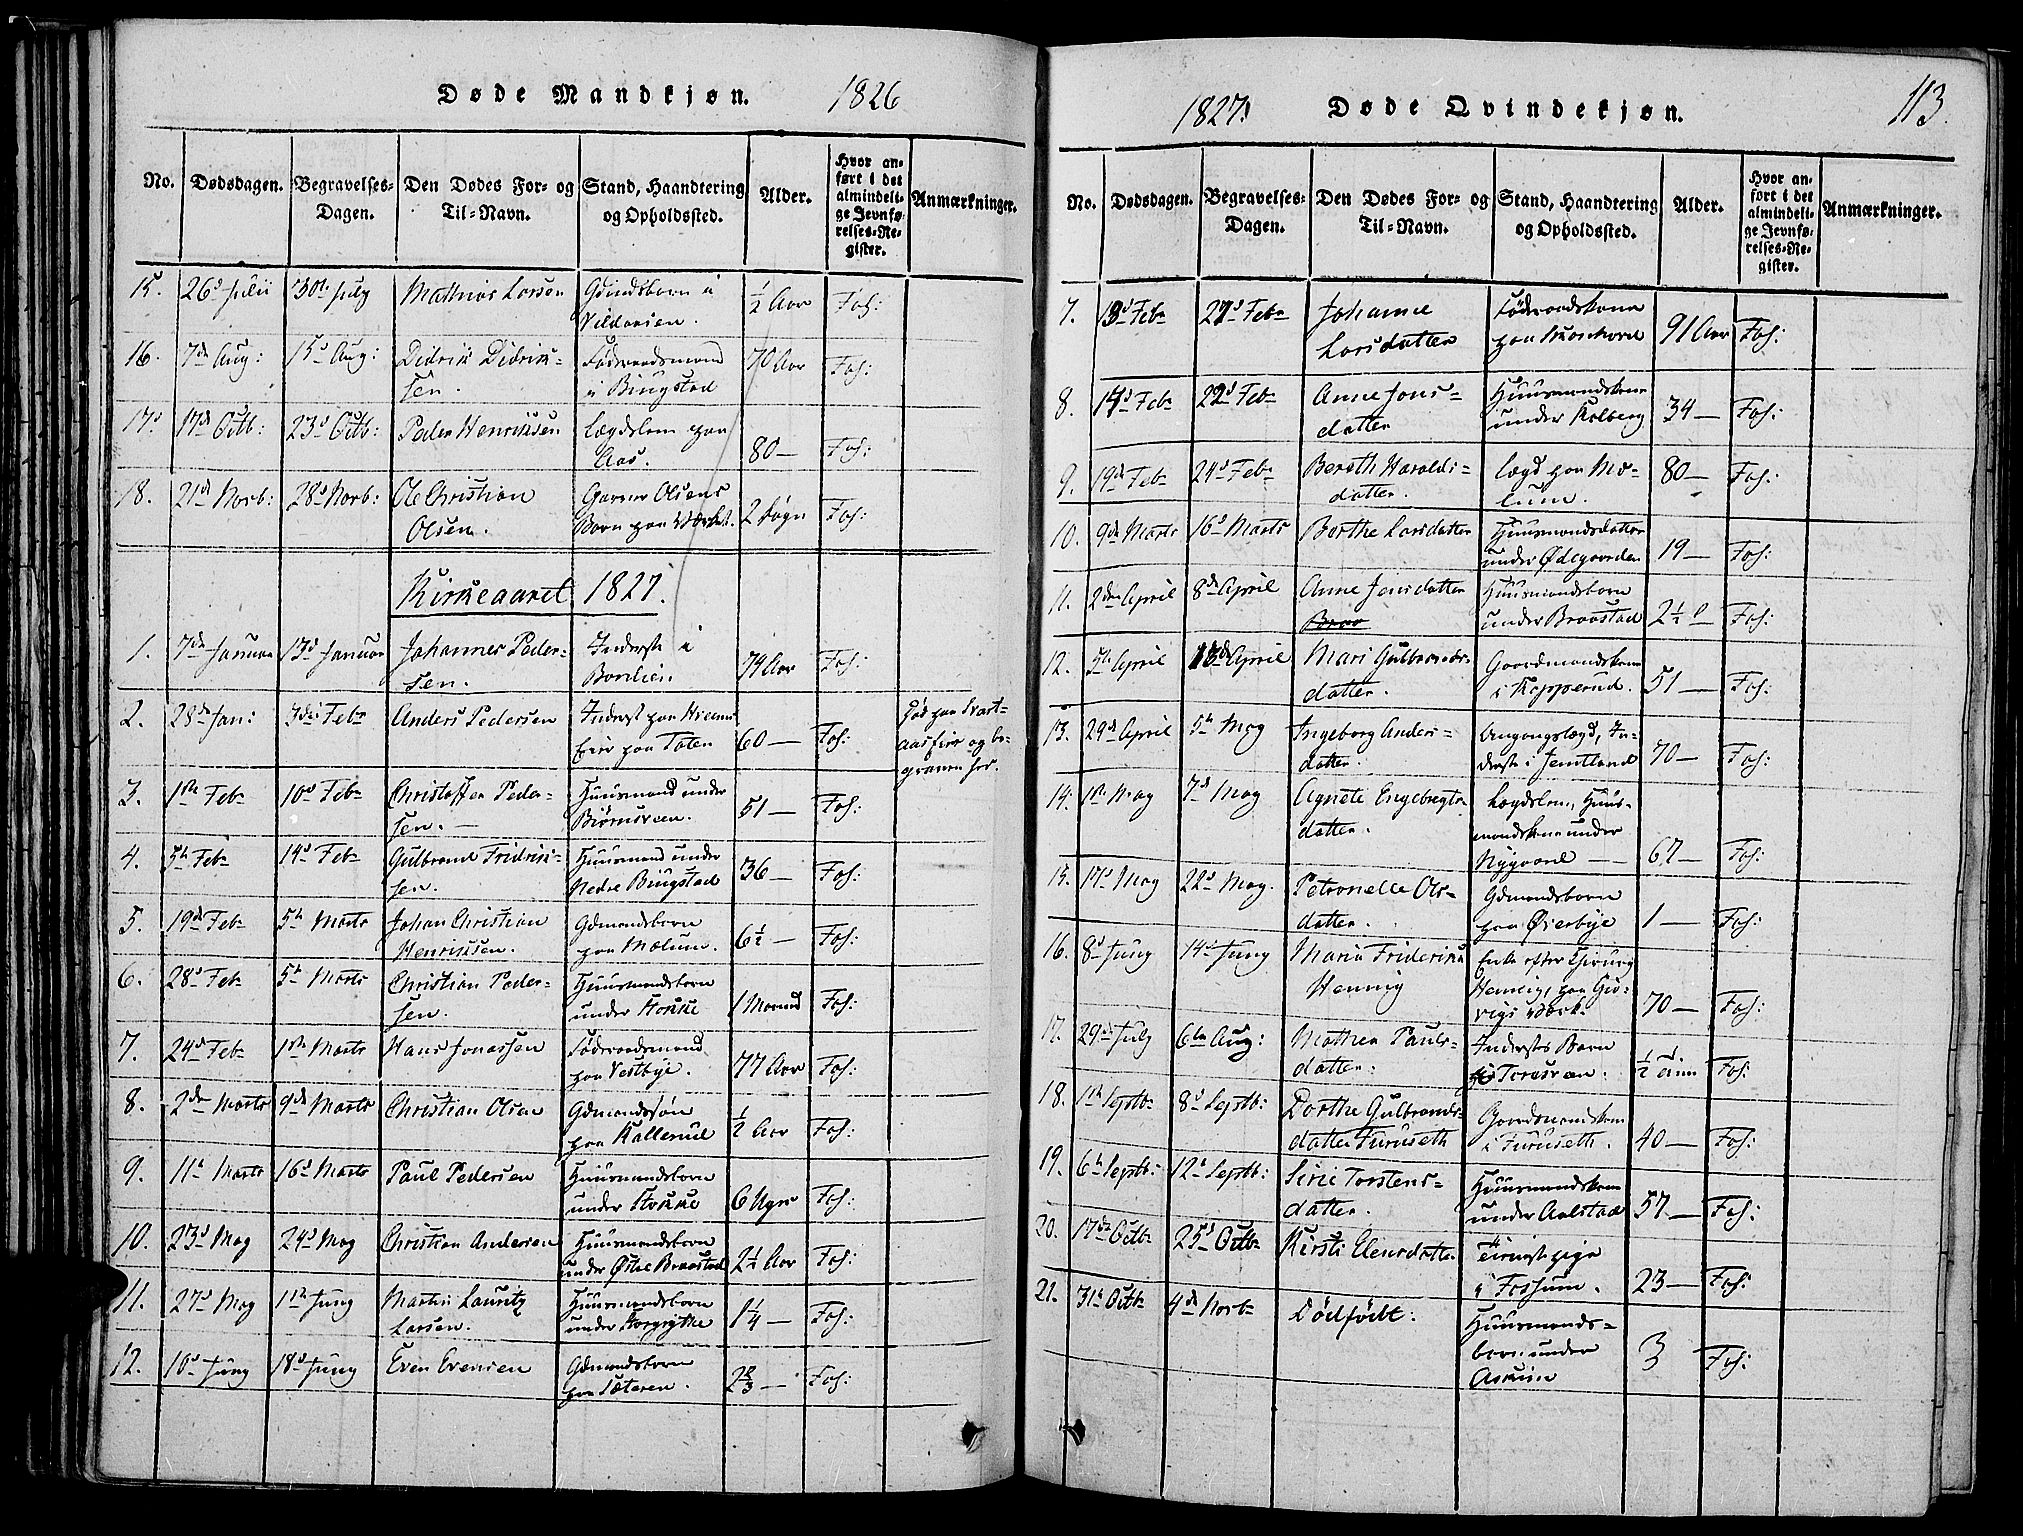 Døde Mandkjøn. 1826
No. Dødsdagen. Begravelses-Dagen. Den Dødes For- og Til-Navn. Stand, Haandtering og Opholdssted. Alder. Hvor anført i det almindelige Jevnførelses-Register. Anmærkninger.
15. 26d Julii 30te July Mathias Larsen i ½ Aar Foh:
16. 7de Aug: 15d Aug: Didrik Didriksen. Föderaadsmand i Bingstad 70 Aar Foh:
17. 17de Octb: 23d Octb: Peder Henriksen Lægdslem paa Aas. 80 — Foh:
18. 21de Novb: 28d Novb: Ole Christian Olsen. Olsens Barn paa 2 Døgn Foh:
Kirkeaaret 1827.
1. 7de Januar 13d Januar Johannes Pedersen. Inderst i 74 Aar Foh:
2. 28de Jan: 3die Febr Anders Pedersen Inderst paa paa Toten 60 — Foh: og begraven her.
3. 1ste Febr 10d Febr Christoffer Pedersen. — Huusmand under 51 — Foh:
4. 5te Febr 14d Febr Gulbrand Fridriksen. Huusmand under Nedre Bingstad 36 — Foh:
5. 19de Febr 5te Marts Johan Christian Henriksen. Gdmandsbarn paa Mælum. 6½ — Foh:
6. 28d Febr 5te Marts Christian Pedersen. Huusmandsbarn under Hokke 1 Maaned Foh:
7. 24d Febr 1ste Marts Hans Jonassen Föderaadsmand paa Vestbye. 77 Aar Foh:
8. 2den Marts 9de Marts Christian Olsen Gdmandssøn paa Kallerud ½ Aar Foh:
9. 11te Marts 16d Marts Paul Pedersen Huusmandsbarn under Hokke 6 Uger Foh:
10. 23d May 24d May Christian Andersen Huusmandsbarn under Østre Braastad 2½ Aar Foh:
11. 27d May 1ste Juny Martin Lauritz Larsen. Huusmandsbarn under 1¼ — Foh:
12. 10d Juny 18d Juny Even Evensen Gdmandsbarn paa Sæteren. 2⅔ — Foh:
1827. Døde Qvindekjøn. 113.
No. Dødsdagen. Begravelses-Dagen. Den Dødes For- og Til-Navn. Stand, Haandtering og Opholdssted. Alder. Hvor anført i det almindelige Jevnførelses-Register. Anmærkninger.
7. 13d Febr 21d Febr Johanne Larsdatter Föderaadskone paa 91 Aar Foh:
8. 14d Febr 22d Febr Anne Jonsdatter Huusmandskone under Kolberg 34 — Foh:
9. 19de Febr 24d Febr Bereth Haraldsdatter. Lægd paa Mælum. 80 — Foh:
10. 9de Marts 16d Marts Berthe Larsdatter Huusmandsdatter under Ødegaarden 19 — Foh:
11. 2den April 8de April Anne Jensdatter Braa Huusmandsbarn under Braastad 2½ Foh:
12. 5te April 13de April Mari Gulbrandsdatter. Gaardmandskone i Kopperud. 51 — Foh:
13. 29d April 5te May Ingeborg Andersdatter. Omgangslægd, Inderste i Jemtland 70 — Foh:
14. 1ste May 7d May Agnete Engebregtsdatter. Lægdslem, Huusmandskone under Nygaard — 67 — Foh:
15. 17d May 22d May. Petronelle Olsdatter. Gdmandsbarn paa Øverbye 1 — Foh:
16. 8d Juny 14d Juny Maria Friderika Hennig Enke efter Chirurg Hennig, paa Giøvigs Værk. 70 — Foh:
17. 29de July 6te Aug: Mathea Paulsdatter. Inderstes Barn ½ Foh:
18. 1ste Septbr 8d Septb: Dorthe Gulbrandsdatter Furuseth Gaardmandskone i Furuseth. 40 — Foh:
19. 6te Septb: 12d Septb: Sirie Torstensdatter. Huusmandskone under Aalstad 57 — Foh:
20. 17de Octb 25d Octbr Kirsti Elensdatter Tienestpige i Fossum. 23 — Foh:
21. 31te Octbr 4de Novbr Dödfödt: Huusmandsbarn under Askim 3 Foh: